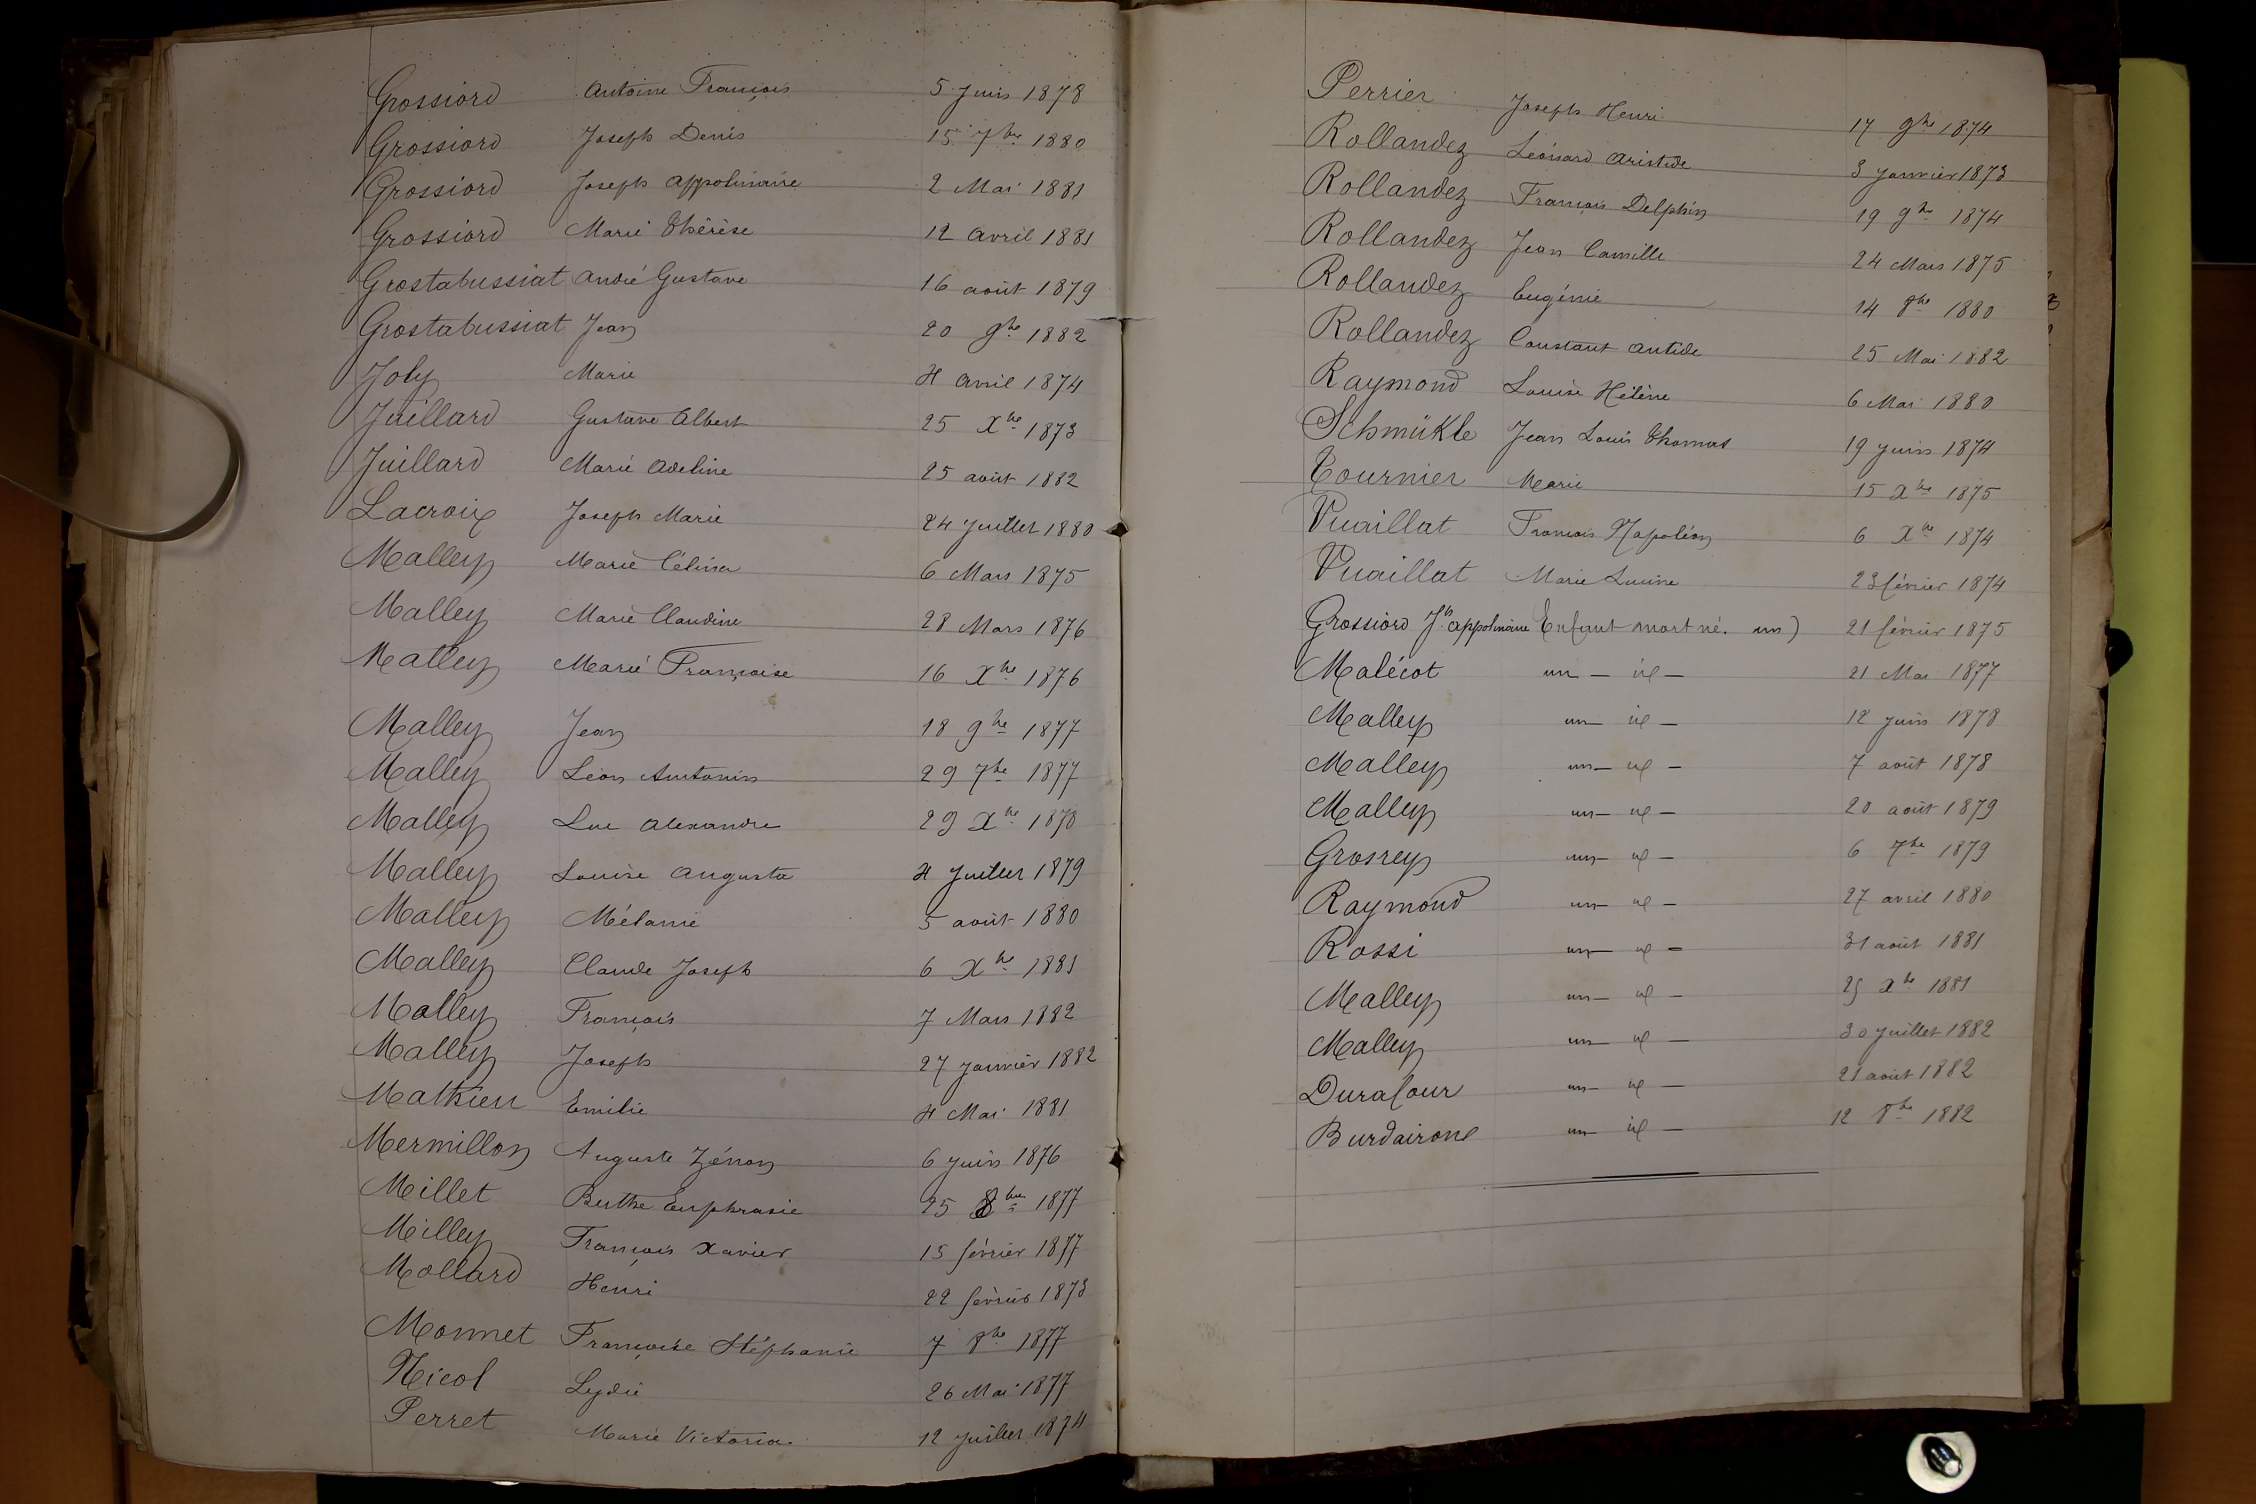 Grossiord Antoine François 5 Juin 1878
Grossiord Joseph Denis 15 7bre 1880
Grossiord Joseph Appolinaire 2 Mai 1881
Grossiord Marie Thérèse 12 Avril 1881
Grostabussiat André Gustave 16 août 1879
Grostabussiat Jean 20 9bre 1882
Joly Marie 4 Avril 1874
Juillard Gustave Albert 25 Xbre 1873
Juillard Marie Adeline 25 août 1882
Lacroix Joseph Marie 24 Juillet 1880
Malley Marie Célina 6 Mars 1875
Malley Marie Claudine 28 Mars 1876
Malley Marie Françoise 16 Xbre 1876
Malley Jean 18 9bre 1877
Malley Léon Antonin 29 7bre 1877
Malley Luc Alexandre 29 Xbre 1878
Malley Louise Augusta 4 Juillet 1879
Malley Mélanie 5 août 1880
Malley Claude Joseph 6 Xbre 1881
Malley François 7 Mars 1882
Malley Joseph 27 Janvier 1882
Mathieu Emilie 4 Mai 1881
Mermillon Auguste Zénon 6 Juin 1876
Millet Berthe Euphrasie 25 8bre 1877
Milley François Xavier 15 février 1877
Mollard Henri 22 février 1873
Monnet Françoise Stéphanie 7 8bre 1877
Nicol Lydie 26 Mai 1877
Perret Marie Victoria 12 Juillet 1874
Perrier Joseph Henri 17 9bre 1874
Rollandez Léonard Aristide 3 Janvier 1873
Rollandez François Delphin 19 9bre 1874
Rollandez Jean Camille 24 Mars 1875
Rollandez Eugénie 14 8bre 1880
Rollandez Constant Antide 25 Mai 1882
Raymond Louise Hélène 6 Mai 1880
Schmükle Jean Louis Thomas 19 Juin 1874
Tournier Marie 15 Xbre 1875
Vuaillat François Napoléon 6 Xbre 1874
Vuaillat Marie Lucine 23 février 1874
Grossiord Jh Appolinaire Enfant mort né. un) 21 février 1875
Malécot un — id — 21 Mai 1877
Malley un — id — 12 Juin 1878
Malley un — id — 7 août 1878
Malley un — id — 20 août 1879
Grosrey un — id — 6 7bre 1879
Raymond un — id — 27 avril 1880
Rossi un — id — 31 août 1881
Malley un — id — 25 Xbre 1881
Malley un — id — 30 Juillet 1882
Durafour un — id — 21 août 1882
Burdairone un — id — 12 8bre 1882